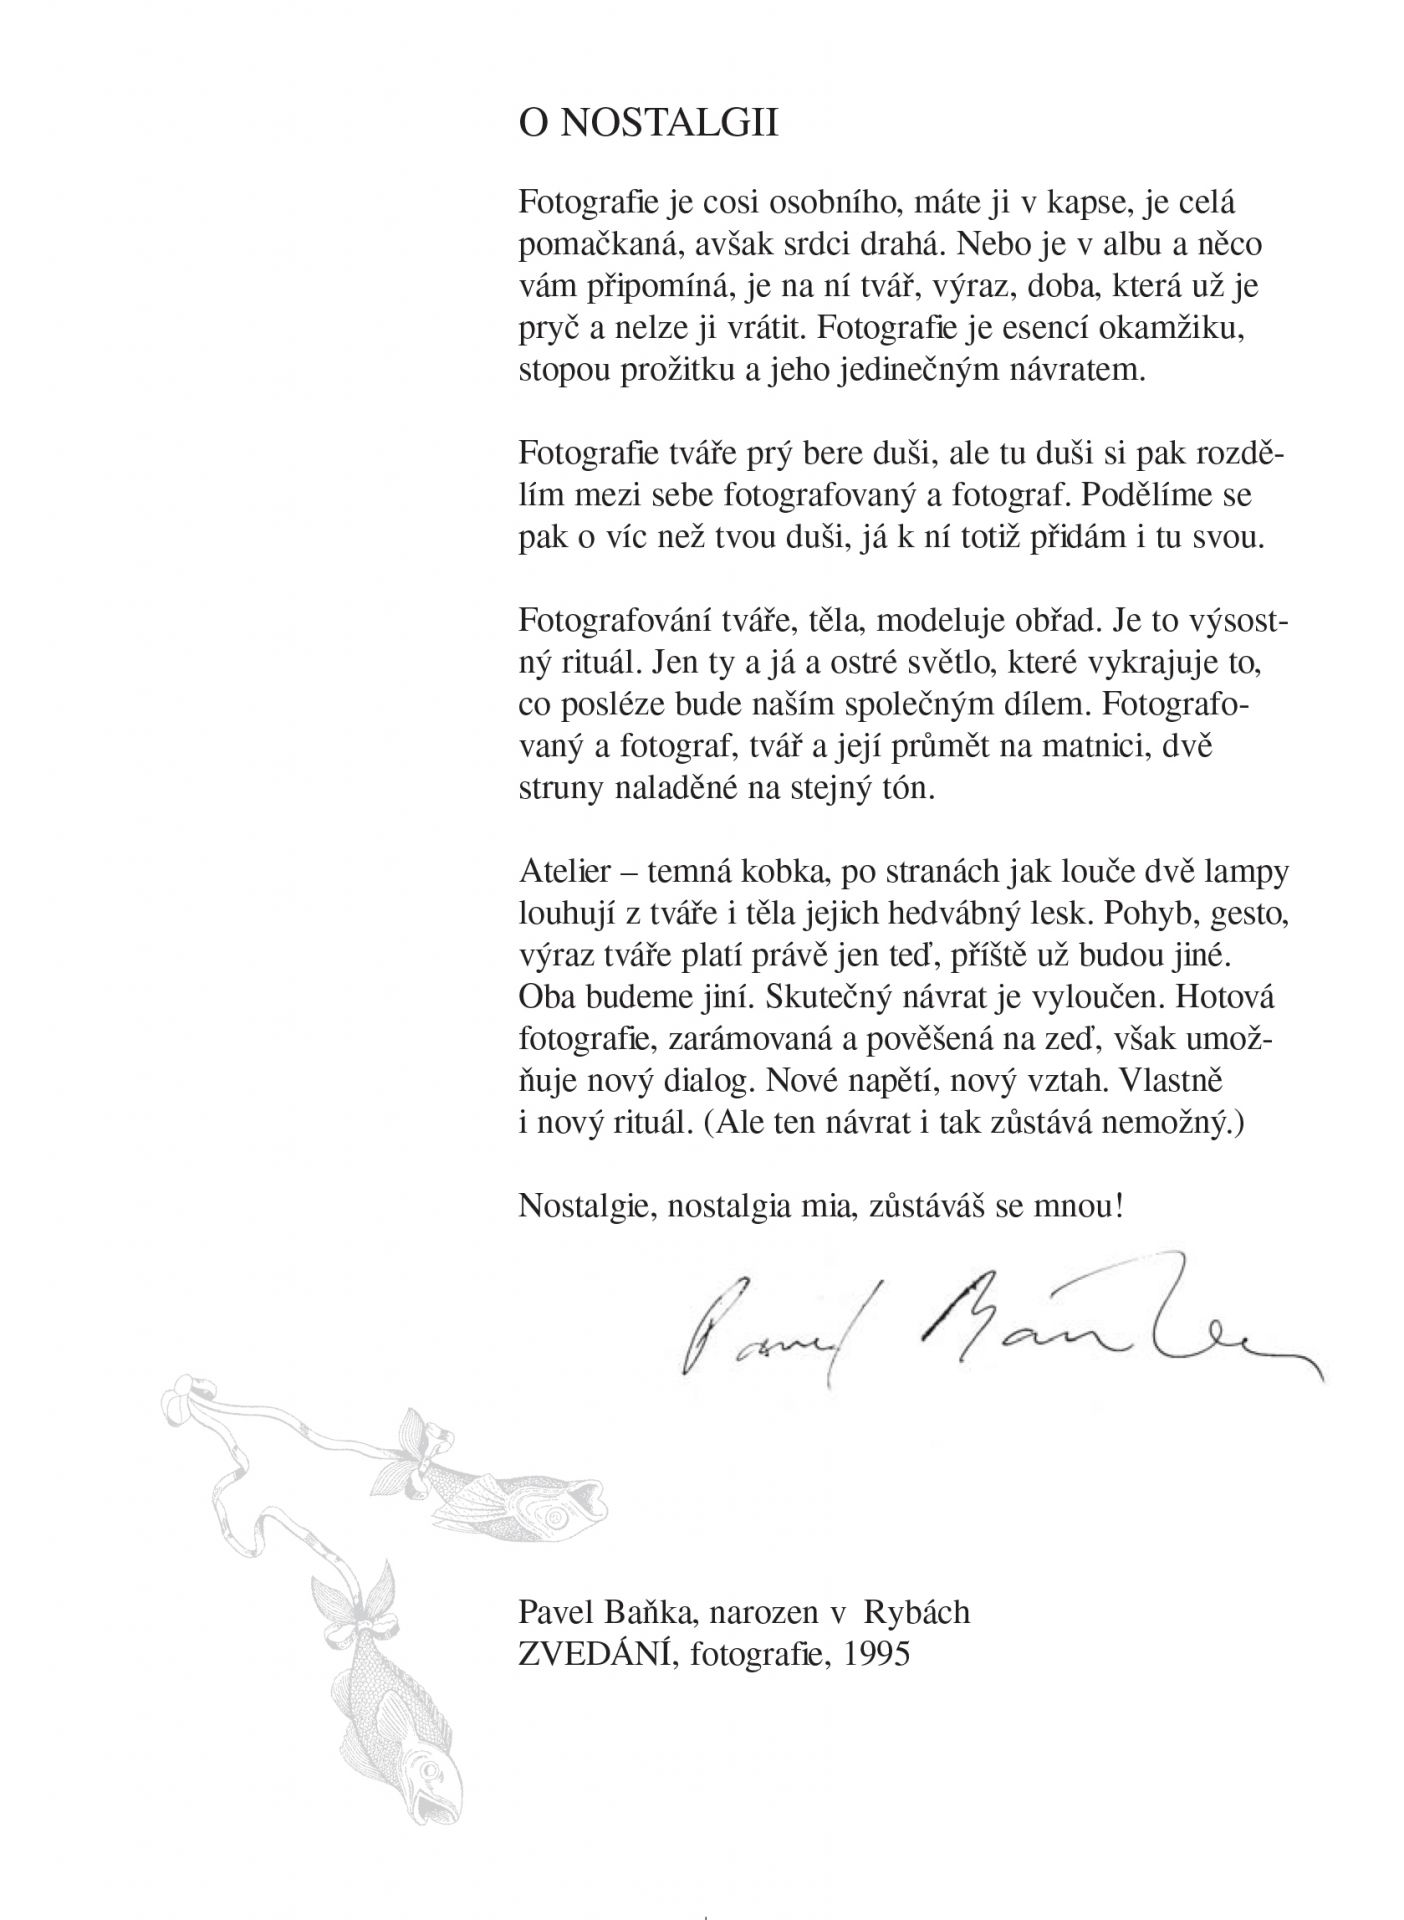 O NOSTALGII
Fotografie je cosi osobního, máte ji v kapse, je celá
pomačkaná, avšak srdci drahá. Nebo je v albu a něco
vám připomíná, je na ní tvář, výraz, doba, která už je
pryč a nelze ji vrátit. Fotografie je esencí okamžiku,
stopou prožitku a jeho jedinečným návratem.
Fotografie tváře prý bere duši, ale tu duši si pak rozdě-
lím mezi sebe fotografovaný a fotograf. Podělíme se
pak o víc než tvou duši, já k ní totiž přidám i tu svou.
Fotografování tváře, těla, modeluje obřad. Je to výsost-
ný rituál. Jen ty a já a ostré světlo, které vykrajuje to,
co posléze bude naším společným dílem. Fotografo-
vaný a fotograf, tvář a její průmět na matnici, dvě
struny naladěné na stejný tón.
Atelier – temná kobka, po stranách jak louče dvě lampy
louhují z tváře i těla jejich hedvábný lesk. Pohyb, gesto,
výraz tváře platí právě jen teď, příště už budou jiné.
Oba budeme jiní. Skutečný návrat je vyloučen. Hotová
fotografie, zarámovaná a pověšená na zeď, však umož-
ňuje nový dialog. Nové napětí, nový vztah. Vlastně
i nový rituál. (Ale ten návrat i tak zůstává nemožný.)
Nostalgie, nostalgia mia, zůstáváš se mnou!
Pavel Baňka
Pavel Baňka, narozen v Rybách
ZVEDÁNÍ, fotografie, 1995